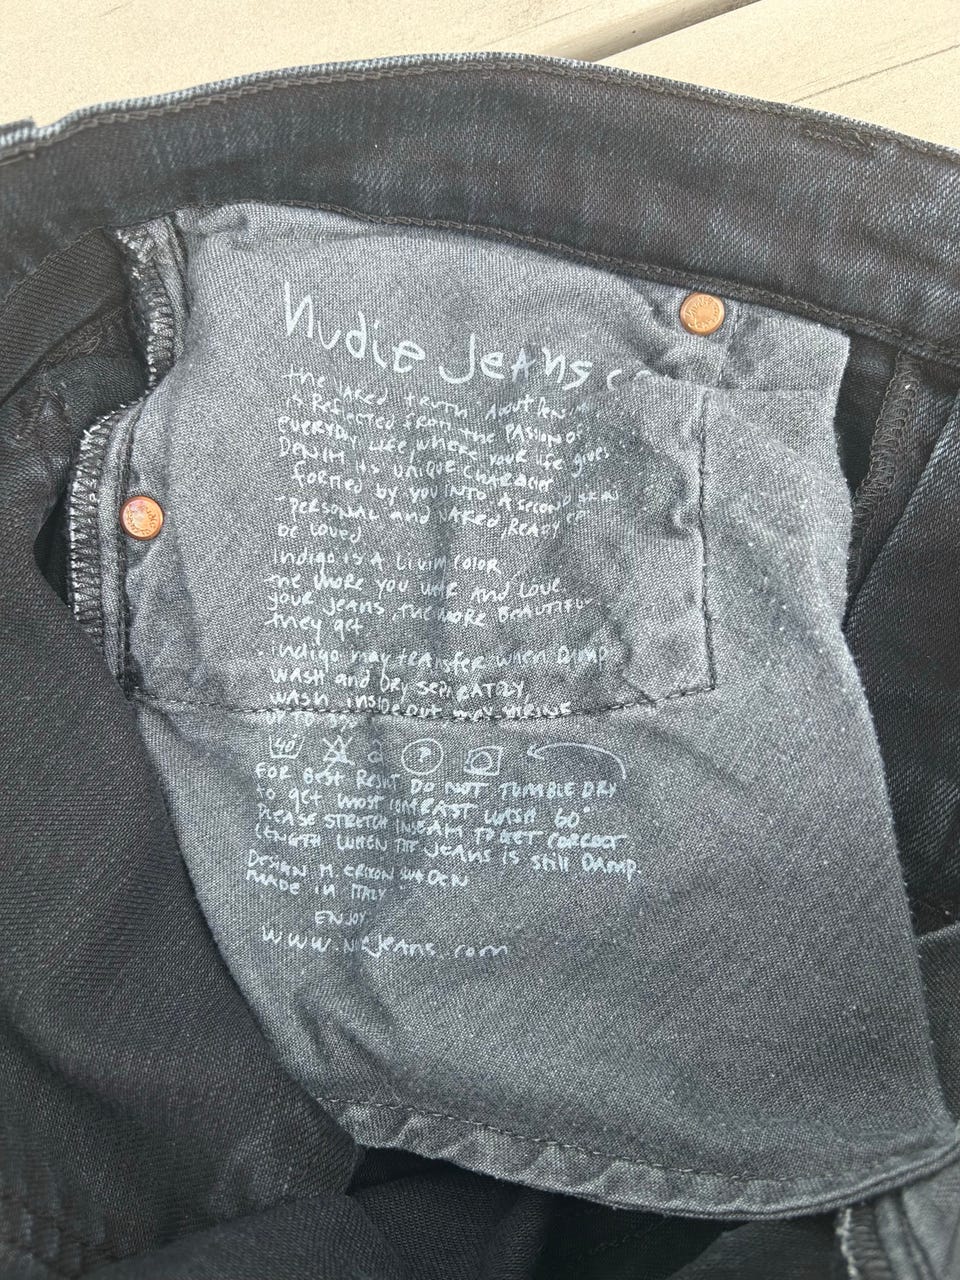 Nudie Jeans co
the NAKED truth About Denim
is Reflected from the PASION of
everyday Life, where your life gives
DENIM its unique CHARACTER
formed by you into A second skin
PERSONAL and NAKED, Ready
be loved
Indigo is A Livin color
the more you wear And Love
your jeans, the more BEAUTIFUL
they get
indigo may transfer when DAMP
WASH and DRY SEPERATLY,
WASH inside out may SHRINK
UP TO 3%
40 P
FOR BEST Result DO NOT TUMBLE DRY
to get most CONTRAST WASH 60°
PLEASE STRETCH INSEAM TO GET CORRECT
LENGTH WHEN THE JEANS is still DAMP.
DESIGN M. ERIXON SWEDEN
MADE in ITALY
ENJOY